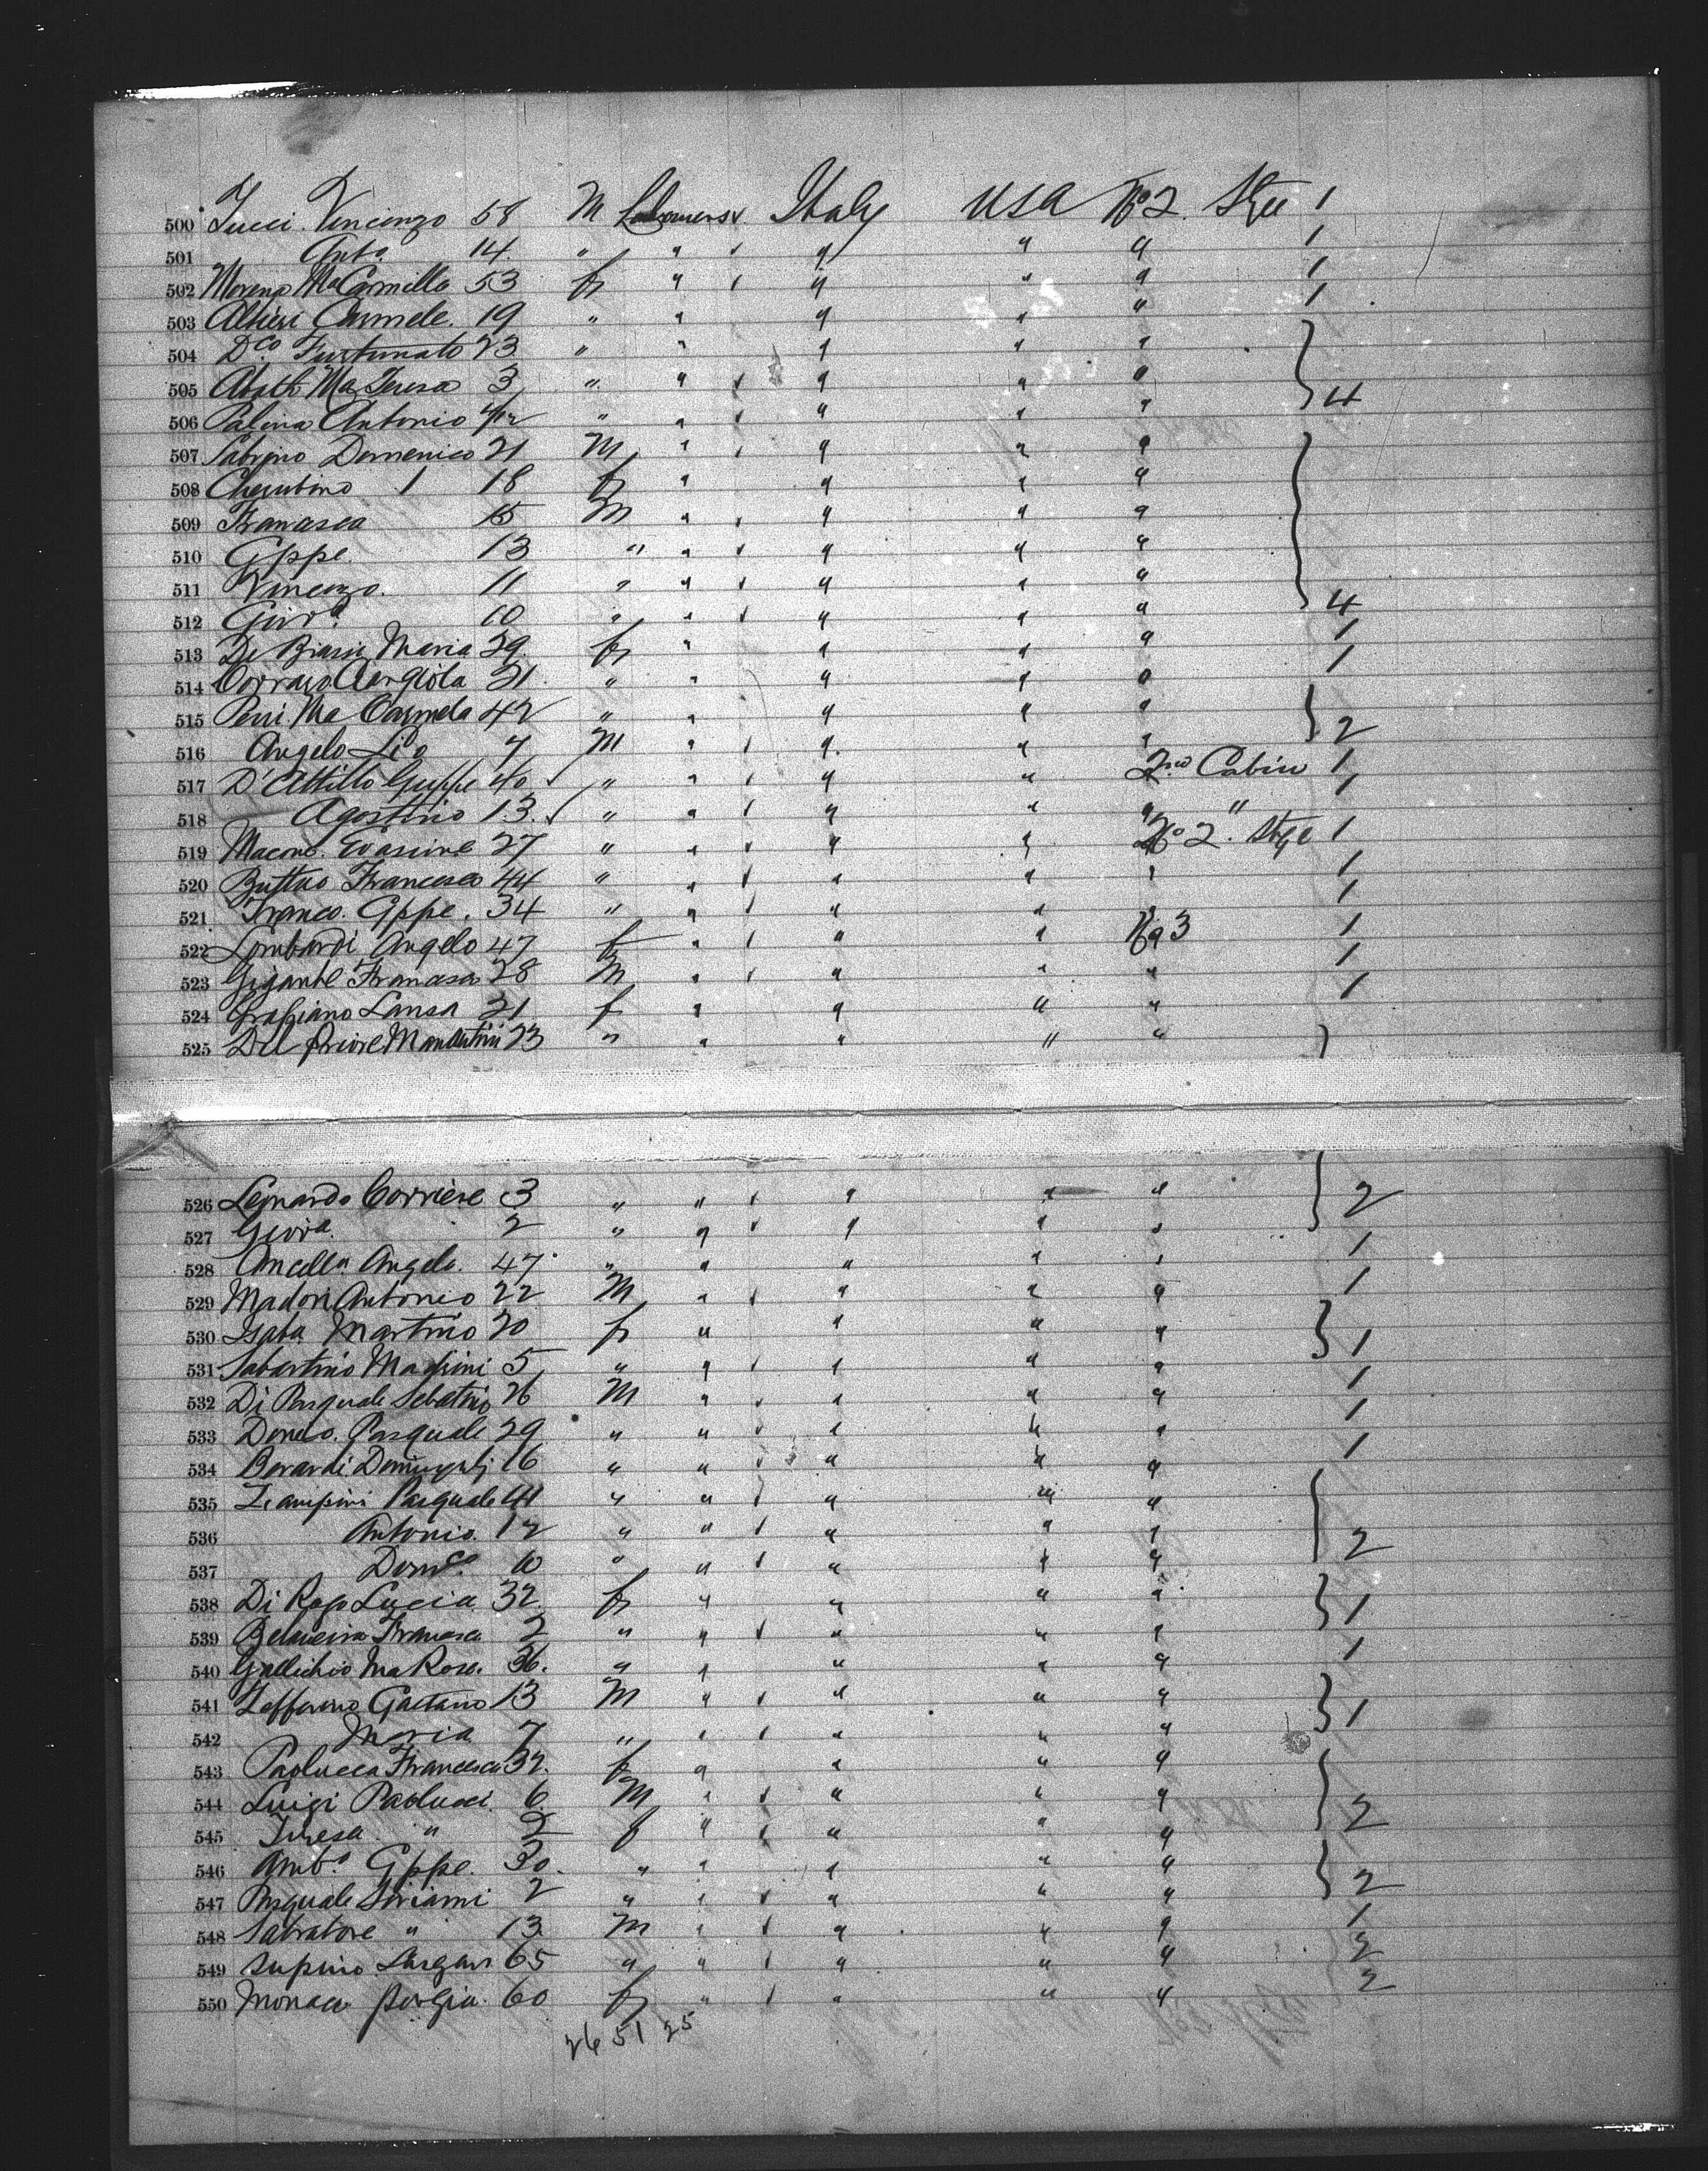 500 Tucci Vincenzo 58 M Laborers Italy USA No 2. Stge 1
501 Anto 14 " " " " " 1
502 Morena Ma Carmilla 53 f " " " " 1
503 Altieri Carmele. 19 " " " " " 1
504 Dco Furtunato 23 " " " " "
505 Ma Teresa 3 " " " " " 4
506 Palina Antonio " " " " "
507 Sabrino Domenico 21 M " " " "
508 Cherubino 1 18 f " " " "
509 Francesca 15 M " " " "
510 Gppe. 13 " " " " "
511 Vincenzo. 11 " " " " " 4
512 Giova 10 " " " " " 1
513 De Biasii Maria 29 f " " " " 1
514 Angiola 31 " " " " "
515 Perri Ma Carmela 42 " " " " " 2
516 Angelo Lio 7 M " " " "
517 D'Attillo Guppe 40 " " " " 2nd Cabin 1
518 Agostino 13. " " " " " " 1
519 27 " " " " No 2. Stge 1
520 Francesco 44 " " " " " 1
521 Franco. Gppe. 34 " " " " " 1
522 Lombardi Angelo 47 f " " " No 3 1
523 Gigante Francesca 28 M " " " " 1
524 Grafiano Lansa 31 f " " " " 1
525 Del Priore 23 " " " " "
526 Leonardo Corriere 3 " " " " " 2
527 Giova. 2 " " " " "
528 Ancella Angela. 47 " " " " " 1
529 Madori Antonio 22 M " " " " 1
530 Isaba Martino 20 f " " " " 1
531 Sabartino 5 " " " " "
532 Di Pasquale Sebatino 26 M " " " " 1
533 Pasquale 29 " " " " " 1
534 Berardi 16 " " " " " 1
535 Pasquale 41 " " " " "
536 Antonio. 12 " " " " " 2
537 Domco. 10 " " " " "
538 Di Rago Lucia 32 f " " " " 1
539 Francesca 2 " " " " "
540 Gallichio Ma Rosa. 36. " " " " " 1
541 Zefferino Gaetano 13 M " " " " 1
542 Maria 7 " " " " "
543 Paolucca Francesca 32. f " " " "
544 Luigi Paolucci 6 M " " " " 2
545 Teresa " 2 f " " " "
546 Ambo Gppe. 30. " " " " " 2
547 Pasquale Siriami 2 " " " " "
548 Salvatore " 13 M " " " " 1
549 Supino 65 " " " " " 2
550 Monaco 60 f " " " " 2
26 51 25